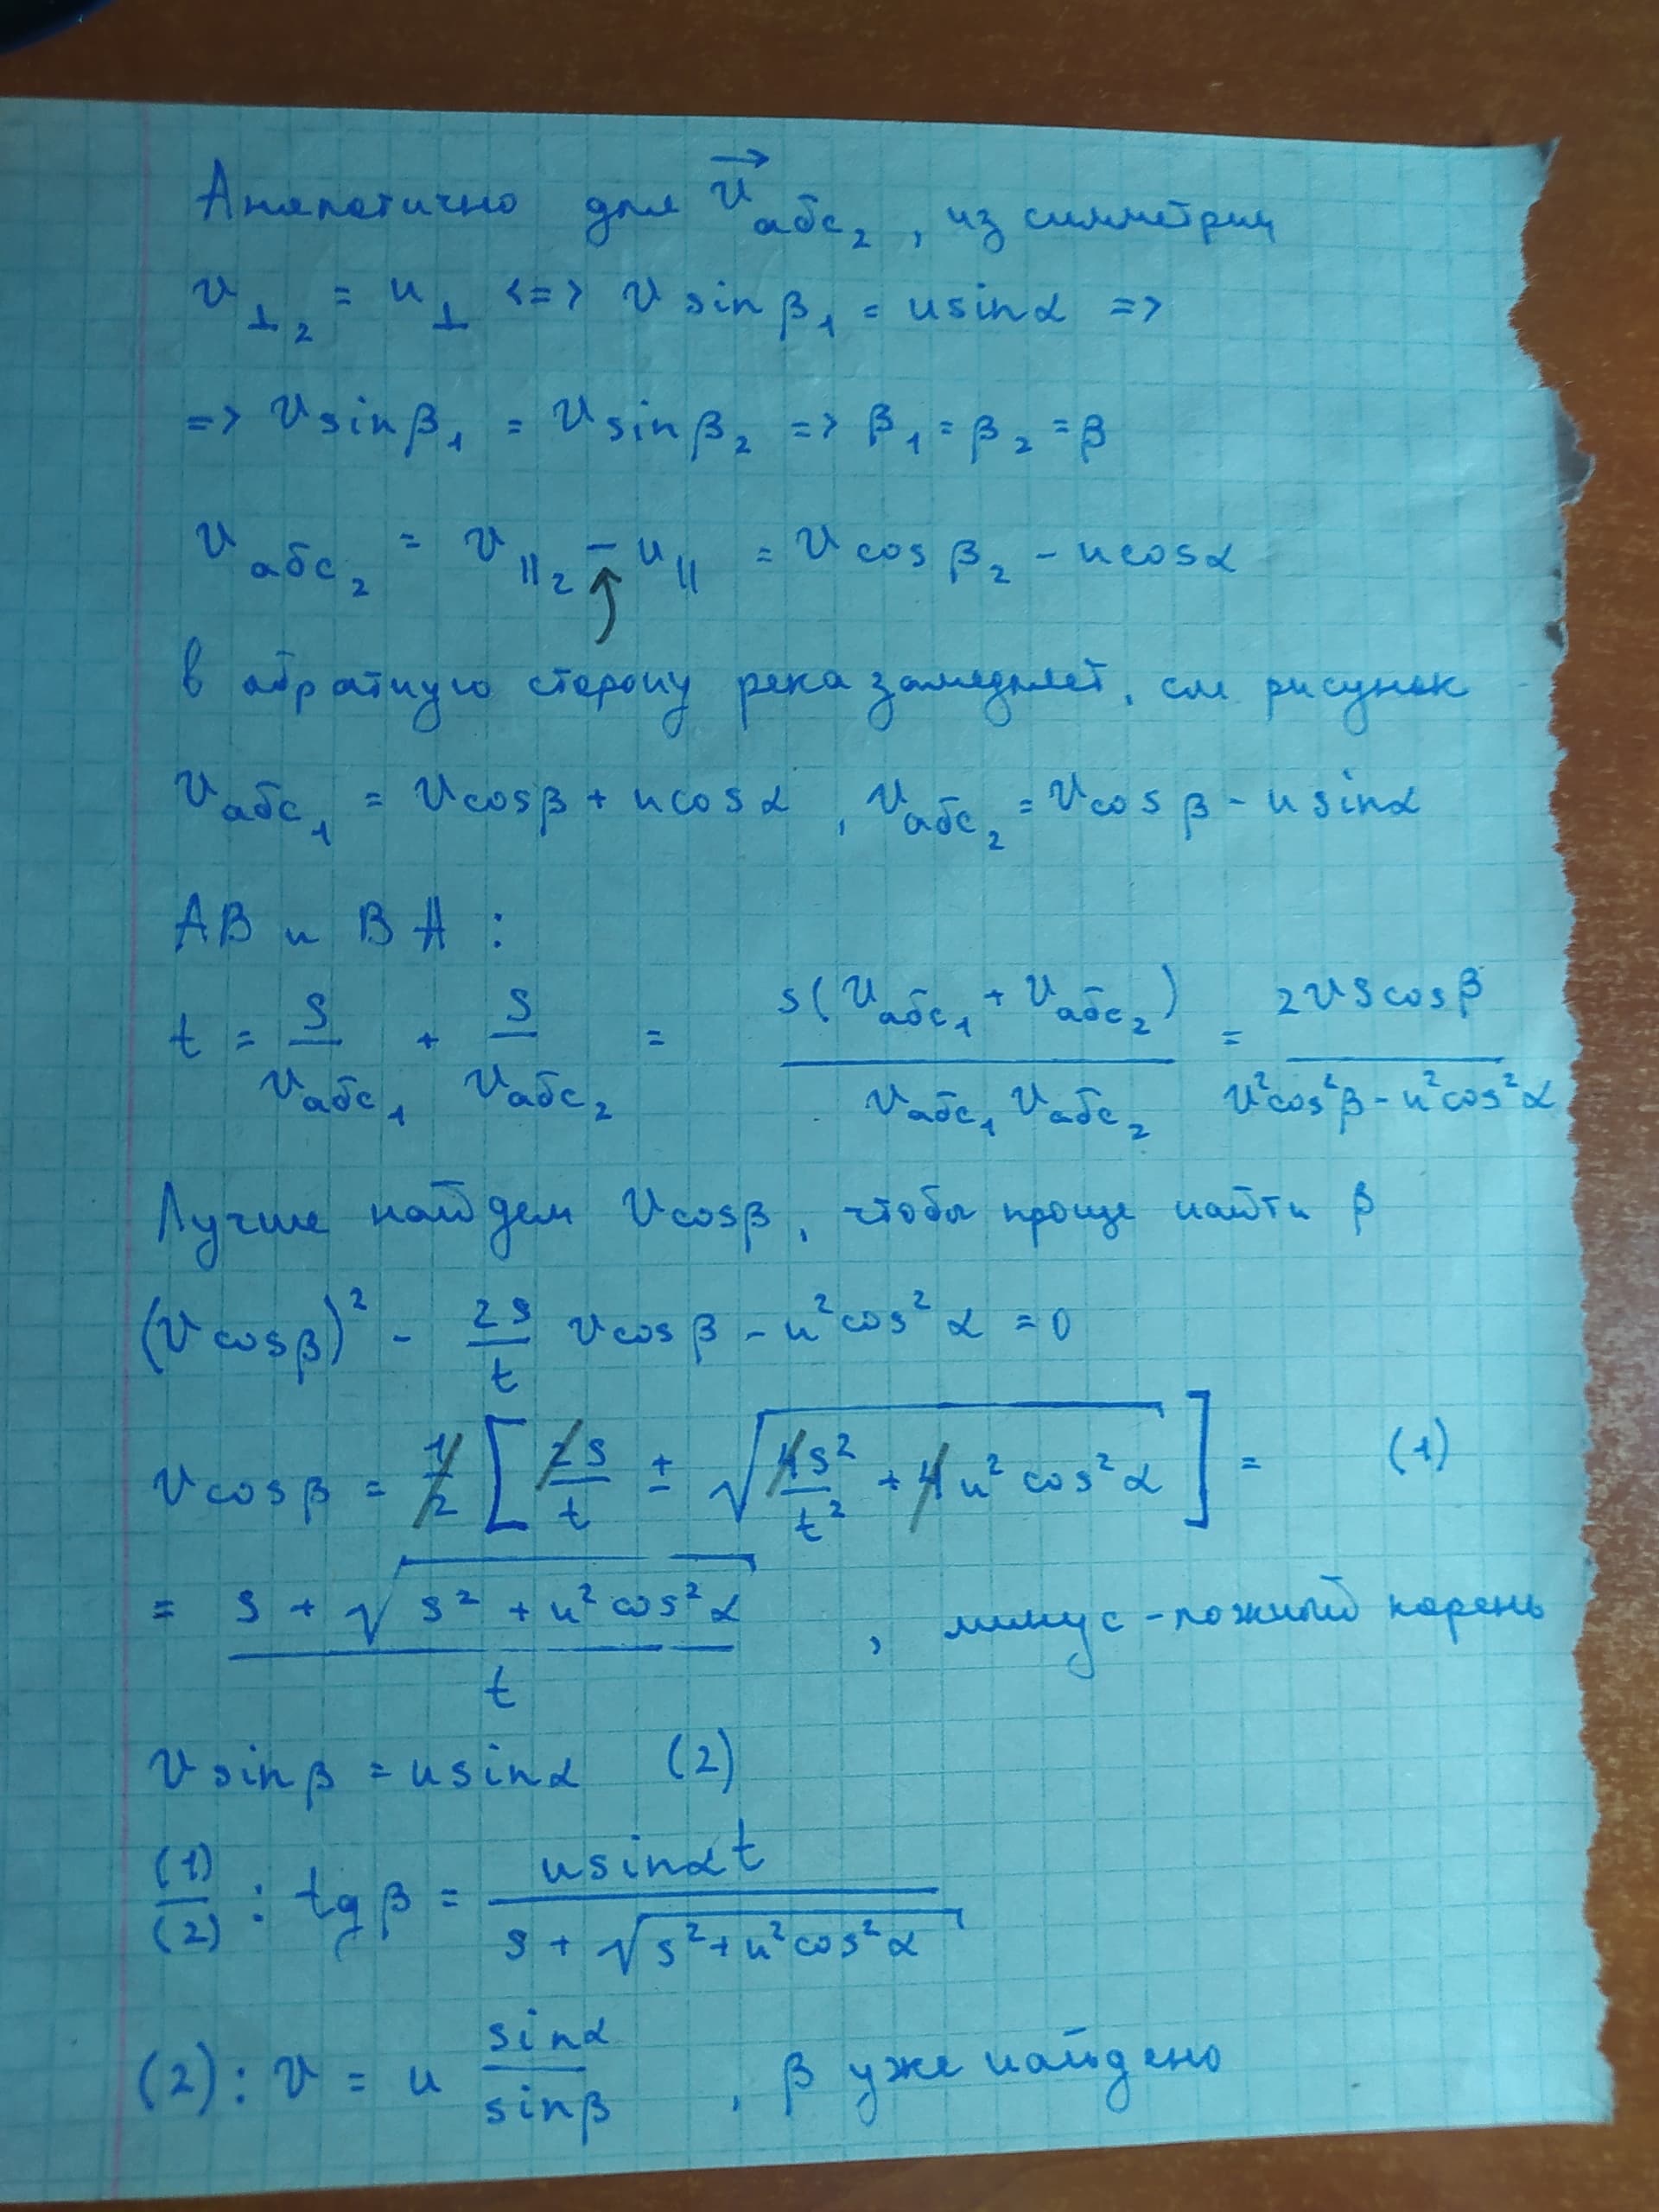 Аналогично для v⃗абс₂, из симметрии
v⊥₂ = u⊥ <=> v sin β₁ = u sin α =>
=> v sin β₁ = v sin β₂ => β₁ = β₂ = β
vабс₂ = v||₂ − u|| = v cos β₂ − u cos α
в обратную сторону река замедляет, см рисунок
vабс₁ = v cos β + u cos α , vабс₂ = v cos β − u sin α
AB и BA :
t = S/vабс₁ + S/vабс₂ = S(vабс₁ + vабс₂)/(vабс₁ vабс₂) = 2vS cos β/(v² cos² β − u² cos² α)
Лучше найдем v cos β, чтобы проще найти β
(v cos β)² − 2S/t v cos β − u² cos² α = 0
v cos β = 1/2 [ 2S/t ± √(4S²/t² + 4u² cos² α) ] = (1)
= (S + √(S² + u² cos² α))/t , минус - ложный корень
v sin β = u sin α (2)
(1)/(2) : tg β = u sin α t/(S + √(S² + u² cos² α))
(2) : v = u sin α/sin β , β уже найдено